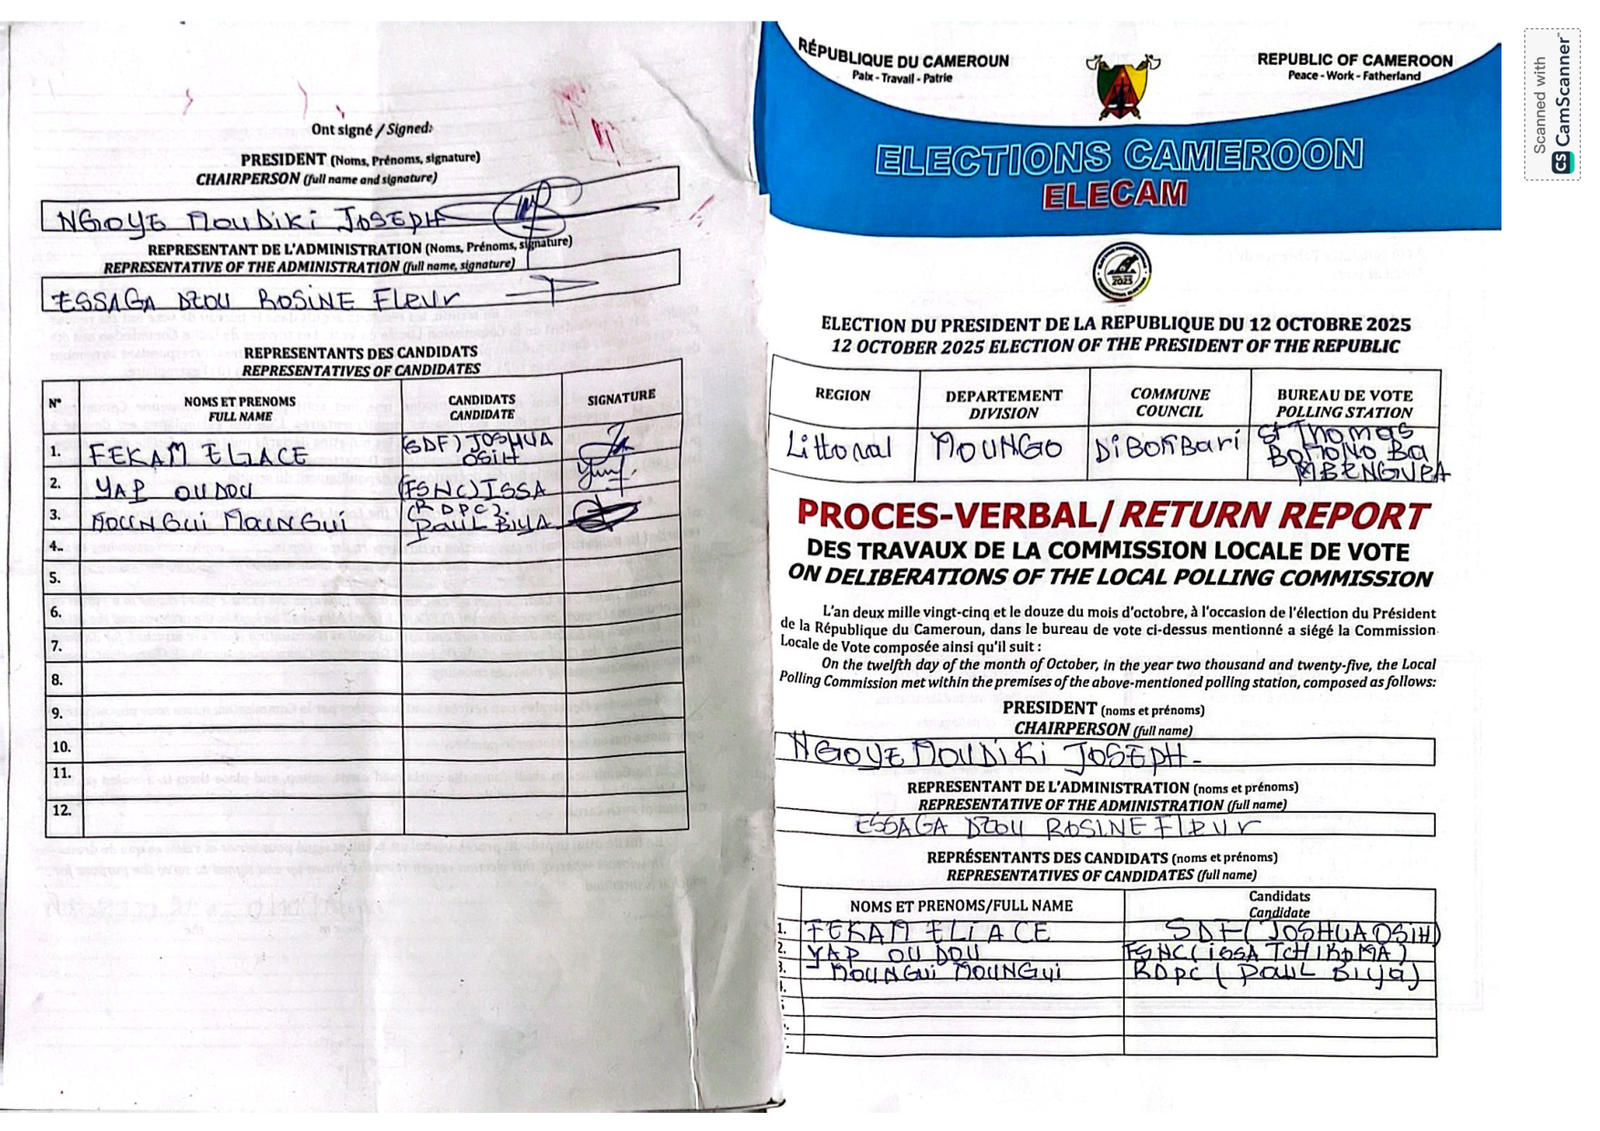 Ont signé / Signed:
PRESIDENT (Noms, Prénoms, signature)
CHAIRPERSON (full name and signature)
NGOYE MOUDIKI JOSEPH
REPRESENTANT DE L'ADMINISTRATION (Noms, Prénoms, signature)
REPRESENTATIVE OF THE ADMINISTRATION (full name, signature)
ESSAGA DZOU ROSINE FLEUR
REPRESENTANTS DES CANDIDATS
REPRESENTATIVES OF CANDIDATES
N° NOMS ET PRENOMS FULL NAME CANDIDATS CANDIDATE SIGNATURE
1. FEKAM ELIACE (SDF) JOSHUA OSIH
2. YAP OUDOU (FSNC) ISSA
3. MOUNGUI MOUNGUI (RDPC) PAUL BIYA
4.
5.
6.
7.
8.
9.
10.
11.
12.
RÉPUBLIQUE DU CAMEROUN
Paix - Travail - Patrie
REPUBLIC OF CAMEROON
Peace - Work - Fatherland
ELECTIONS CAMEROON
ELECAM
2025
ELECTION DU PRESIDENT DE LA REPUBLIQUE DU 12 OCTOBRE 2025
12 OCTOBER 2025 ELECTION OF THE PRESIDENT OF THE REPUBLIC
REGION DEPARTEMENT DIVISION COMMUNE COUNCIL BUREAU DE VOTE POLLING STATION
Littoral MOUNGO DiBOMBARi St Thomas BOMONO BA MBENGUEA
PROCES-VERBAL/ RETURN REPORT
DES TRAVAUX DE LA COMMISSION LOCALE DE VOTE
ON DELIBERATIONS OF THE LOCAL POLLING COMMISSION
L'an deux mille vingt-cinq et le douze du mois d'octobre, à l'occasion de l'élection du Président
de la République du Cameroun, dans le bureau de vote ci-dessus mentionné a siégé la Commission
Locale de Vote composée ainsi qu'il suit :
On the twelfth day of the month of October, in the year two thousand and twenty-five, the Local
Polling Commission met within the premises of the above-mentioned polling station, composed as follows:
PRESIDENT (noms et prénoms)
CHAIRPERSON (full name)
NGOYE MOUDIKI JOSEPH-
REPRESENTANT DE L'ADMINISTRATION (noms et prénoms)
REPRESENTATIVE OF THE ADMINISTRATION (full name)
ESSAGA DZOU ROSINE FLEUR
REPRÉSENTANTS DES CANDIDATS (noms et prénoms)
REPRESENTATIVES OF CANDIDATES (full name)
NOMS ET PRENOMS/FULL NAME Candidats Candidate
1. FEKAM ELIACE SDF(JOSHUA OSIH)
2. YAP OUDOU FSNC(ISSA TCHIROMA)
3. MOUNGUi MOUNGUi RDPC (PAUL BIYA)
Scanned with
CS CamScanner